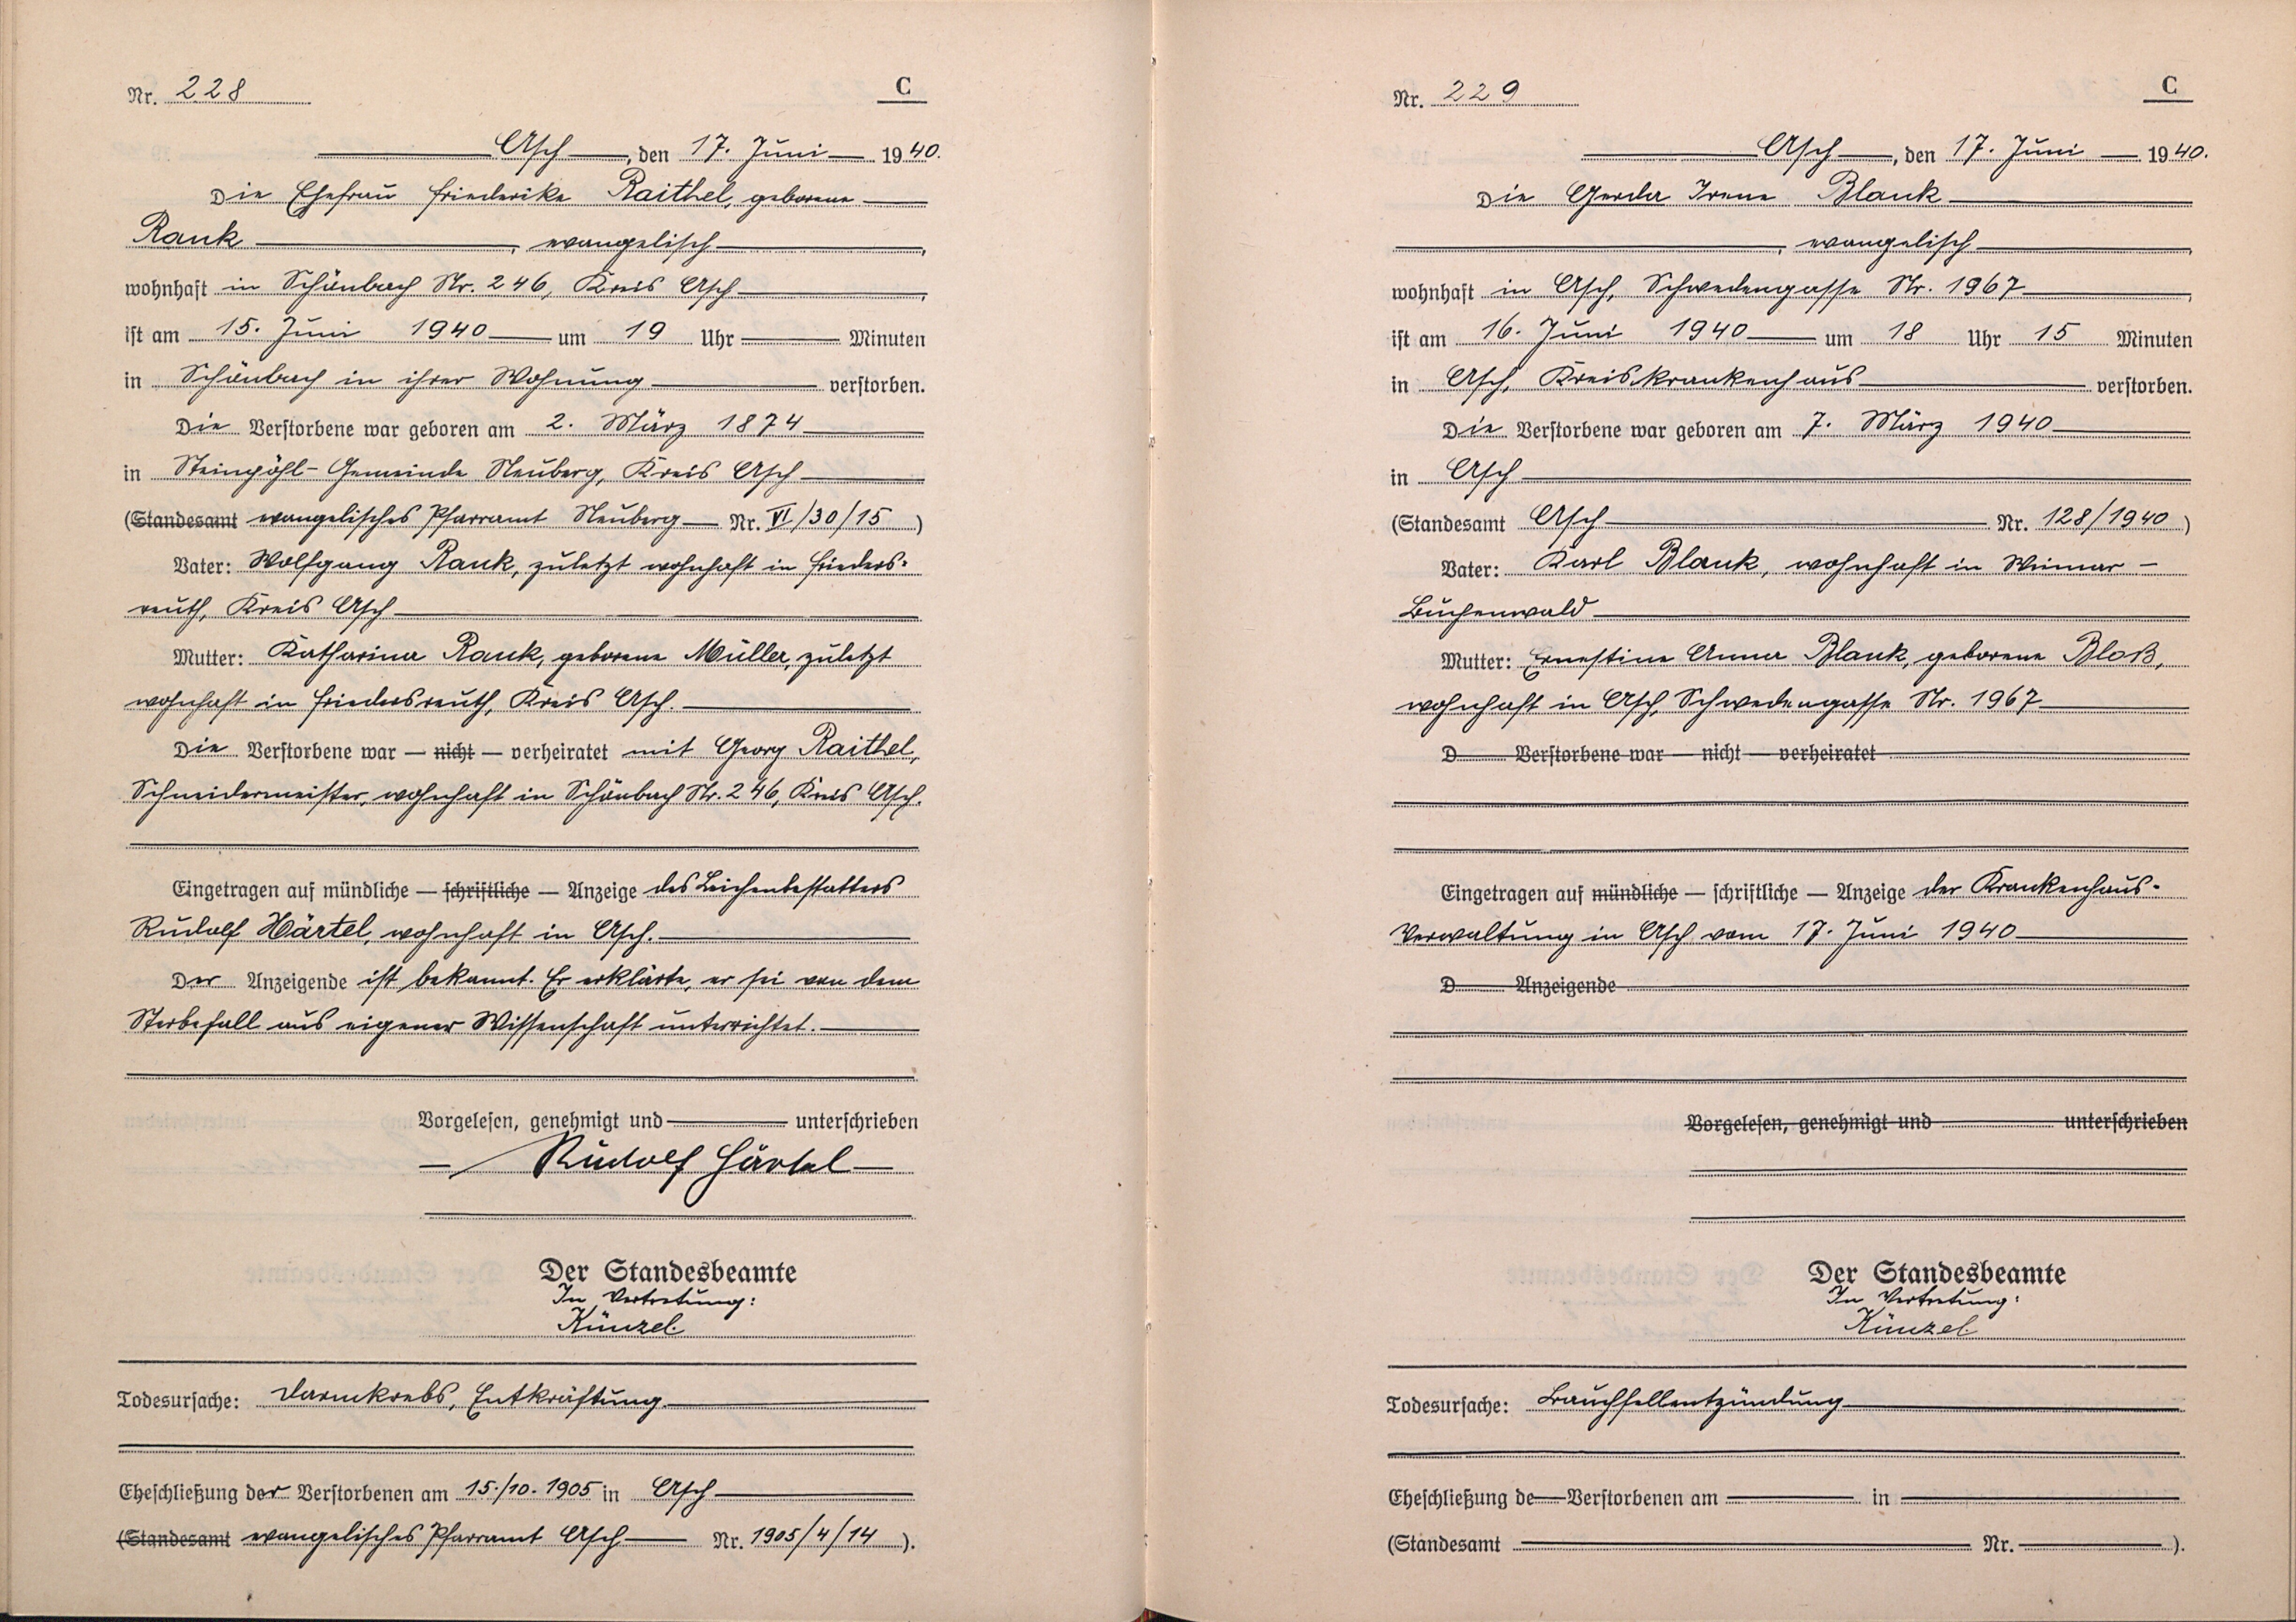 Nr. 228
C
Asch, den 17. Juni 1940.
Die Ehefrau Friederike Raithel, geborene
Rank, evangelisch,
wohnhaft in Schönbach Nr. 246, Kreis Asch,
ist am 15. Juni 1940 um 19 Uhr Minuten
in Schönbach in ihrer Wohnung verstorben.
Die Verstorbene war geboren am 2. März 1874
in Steinpöhl-Gemeinde Neuberg, Kreis Asch
(Standesamt evangelisches Pfarramt Neuberg Nr. VI/30/15)
Vater: Wolfgang Rank, zuletzt wohnhaft in Frieders-
reuth, Kreis Asch
Mutter: Katharina Rank, geborene Müller, zuletzt
wohnhaft in Friedersreuth, Kreis Asch.
Die Verstorbene war — nicht — verheiratet mit Georg Raithel,
Schneidermeister, wohnhaft in Schönbach Nr. 246, Kreis Asch.
Eingetragen auf mündliche — schriftliche — Anzeige des Leichenbestatters
Rudolf Härtel, wohnhaft in Asch.
Der Anzeigende ist bekannt. Er erklärte, er sei von dem
Sterbefall aus eigener Wissenschaft unterrichtet.
Vorgelesen, genehmigt und unterschrieben
Rudolf Härtel
Der Standesbeamte
In Vertretung:
Künzel.
Todesursache: Darmkrebs, Entkräftung.
Eheschließung der Verstorbenen am 15./10. 1905 in Asch
(Standesamt evangelisches Pfarramt Asch Nr. 1905/4/14).
Nr. 229
C
Asch, den 17. Juni 1940.
Die Gerda Irene Blank
, evangelisch,
wohnhaft in Asch, Schwedengasse Nr. 1967,
ist am 16. Juni 1940 um 18 Uhr 15 Minuten
in Asch, Kreiskrankenhaus verstorben.
Die Verstorbene war geboren am 7. März 1940
in Asch
(Standesamt Asch Nr. 128/1940)
Vater: Karl Blank, wohnhaft in Weimar -
Buchenwald
Mutter: Ernestine Anna Blank, geborene Bloß,
wohnhaft in Asch, Schwedengasse Nr. 1967
D Verstorbene war — nicht — verheiratet
Eingetragen auf mündliche — schriftliche — Anzeige der Krankenhaus-
Verwaltung in Asch vom 17. Juni 1940
D Anzeigende
Vorgelesen, genehmigt und unterschrieben
Der Standesbeamte
In Vertretung:
Künzel.
Todesursache: Bauchfellentzündung
Eheschließung de Verstorbenen am in
(Standesamt Nr. ).